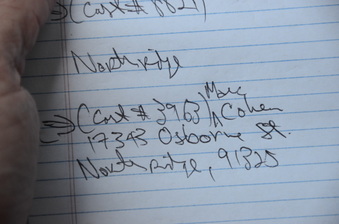 (Cart # 8821)
Northridge
(Cart # 3963) Marc Cohen
17343 Osborne St.
Northridge, 91325